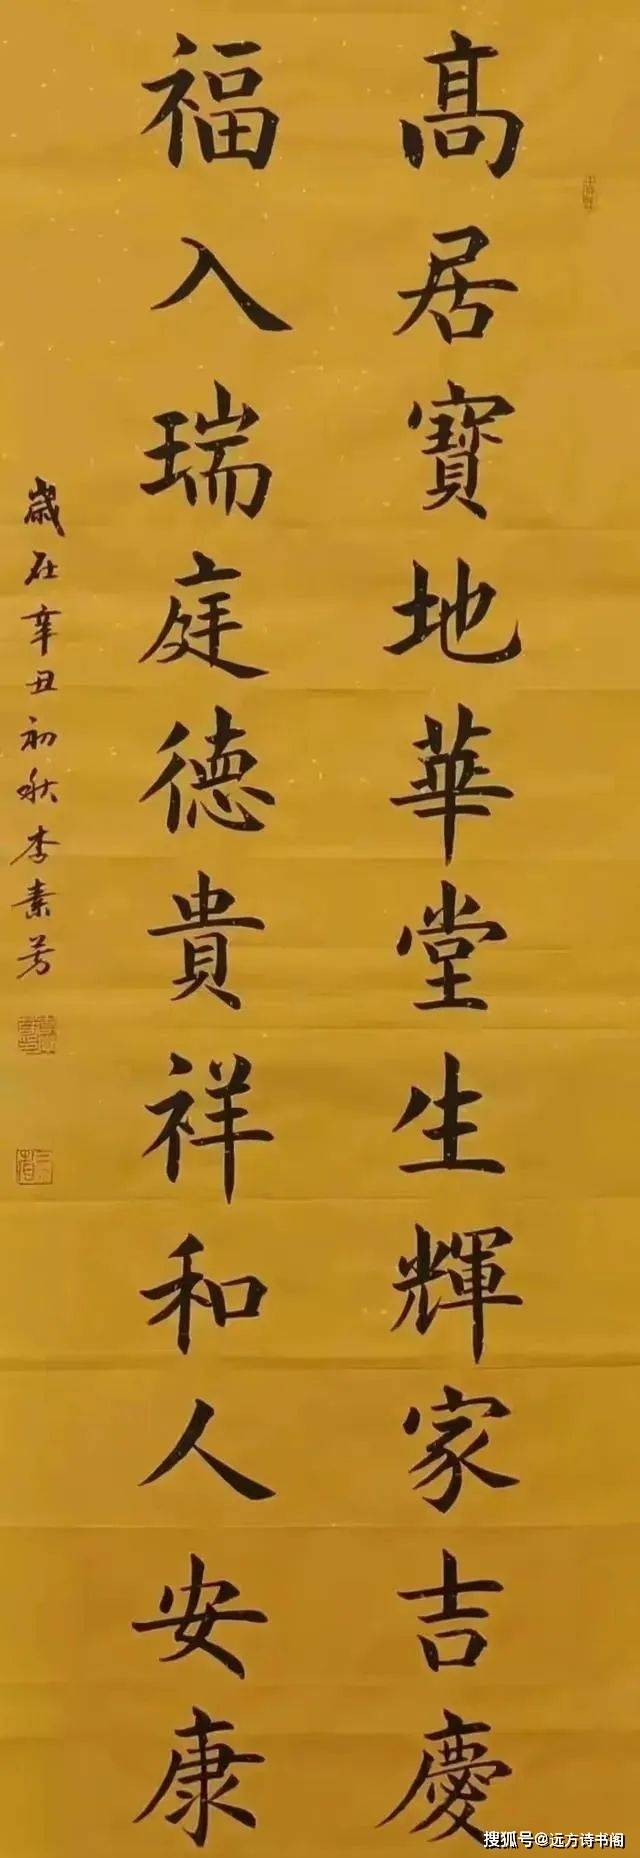 高居寶地華堂生輝家吉慶
福入瑞庭德貴祥和人安康
歲在辛丑初秋李素芳
搜狐号@远方诗书阁